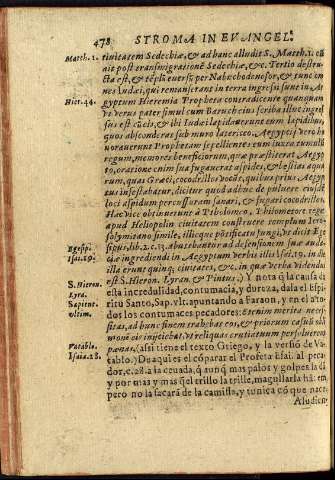 478 STROMA IN EVANGEL.
Matth. 1. tiuitatem Sedechiæ, & ad hanc alludit S. Matth. 1. cũ
ait post transmigrationẽ Sedechiæ, &c. Tertio destru-
cta est, & tẽplũ euersũ per Nabuchodonosor, & tunc om
nes Iudæi, qui remanserant in terra ingressi sunt in Æ-
Hier. 44. gyptum Hieremia Propheta contradicente quanquam
& verus pater simul cum Baruch eius scriba illuc ingres
sus est cũ eis, & ibi Iudæi lapidauerunt eum lapidibus,
quos absconderat sub muro latericeo. Aegyptij verò ho
norauerunt Prophetam sepelientes eum iuxta tumulũ
regum, memores beneficiorum, quæ præstiterat Aegyp
to, oratione enim sua fugauerat aspides, & bestias aqua
rum, quas Græci, cocodrillos vocãt, quibus prius Aegyp
tus infestabatur, dicitur quod adhuc de puluere eiusdẽ
loci aspidum percussuram sanari, & fugari cocodrillos.
Hac vice obtinuerunt à Ptholomeo rege
apud Heliopolin ciuitatem construere templum Iero-
solymitano simile, illicque pontificatu fungi, vt dicit Ege
Egesipi. sipus, lib. 2. c. 13. Abutebantur ad defensionem suæ auda
Isai. 19. ciæ ingrediendi in Aegyptum verbis illis Isai. 19. in die
illa erunt quinq; ciuitates, &c. in quæ verba videndi
S. Hieron. est S. Hieron. Lyran. & Pintus.) Y notà q̃ la causa d̃
Lyra. esta incredulidad, contumacia, y dureza, dala el Espi
Sapient. ritu Santo, Sap. vlt. apuntando a Faraon, y en el a to-
vltim. dos los contumaces pecadores: & enim merita necef-
sitas, ad hunc finem trahebat eos, & priorum casuũ obli
uionẽ eis injiciebat. vt reliquas cruciatuum persoluerent
Vatablo. pœnas. (assi tiene el texto Griego, y la versiõ de Va-
Isaia. 28. tablo.) Dua qui es el cõparar el Profeta Esai. al peca-
dor, c. 28. a la ceuada, q̃ aunq̃ mas palos y golpes la dẽ
y por mas y mas q̃ el trillo la trille, magullarla hã: em
pero no la sacará de la camisla, y tunica cõ que nace.
Aludien-